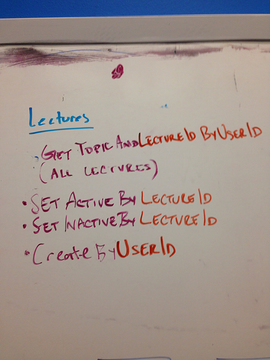 Lectures
• GET TOPIC AND LECTURE ID BY USER ID
(ALL LECTURES)
• SET ACTIVE BY LECTURE ID
• SET INACTIVE BY LECTURE ID
• Create By USER ID